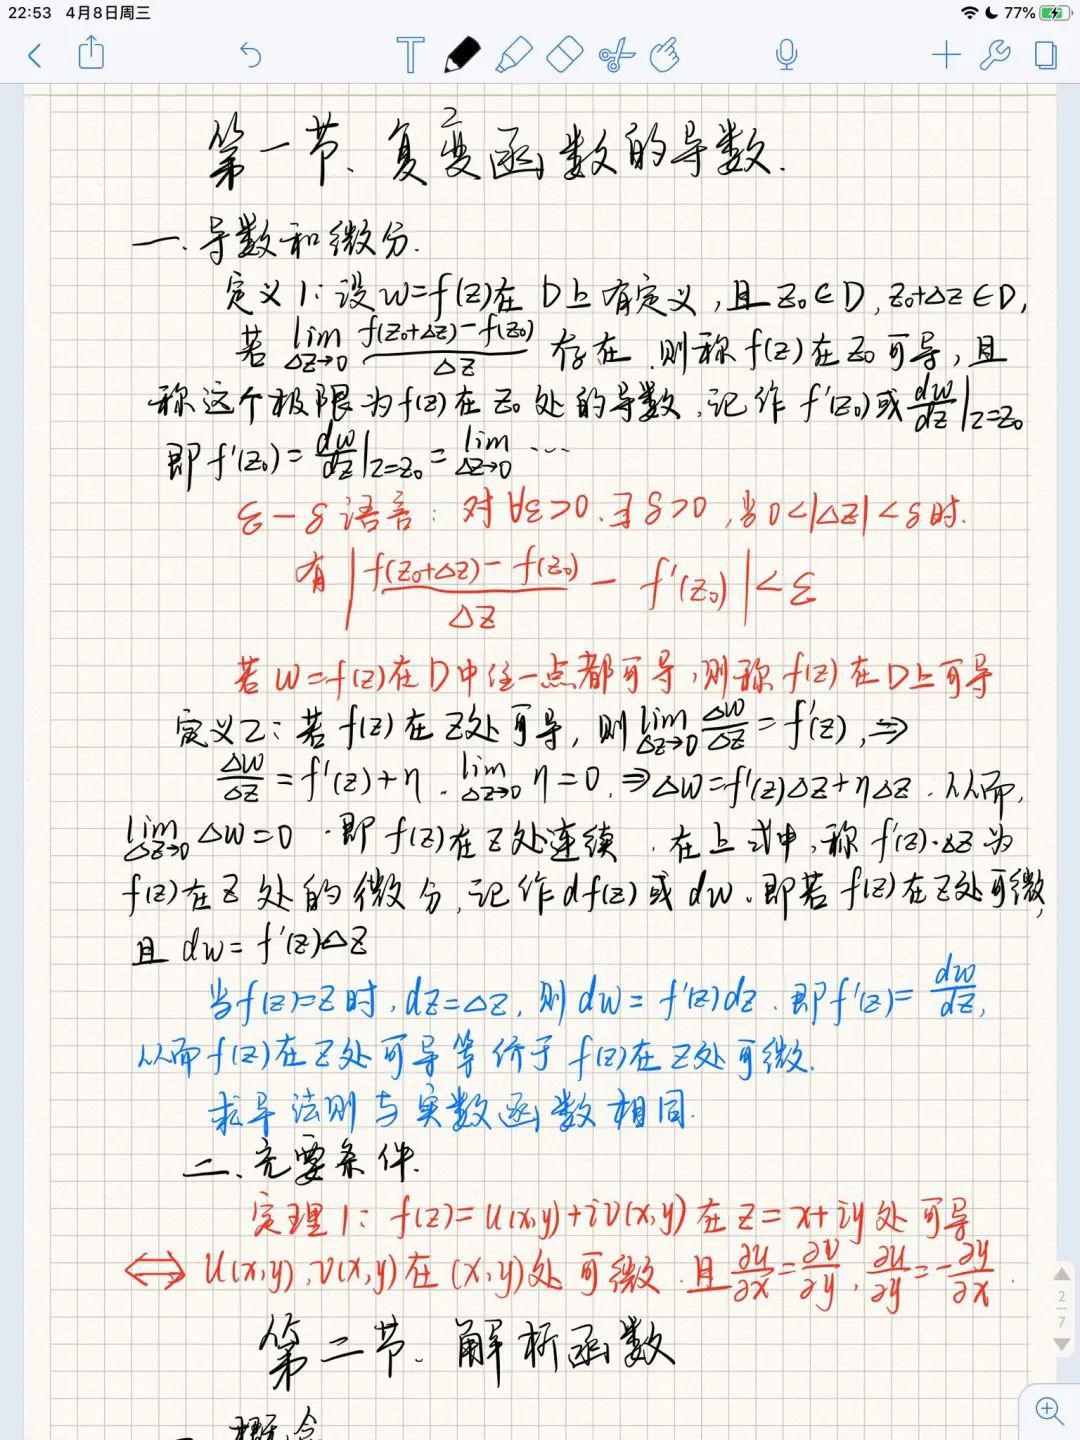 22:53 4月8日周三 77%
T
第一节、复变函数的导数.
一.导数和微分.
定义1:设w=f(z)在D上有定义,且z₀∈D,z₀+Δz∈D,
若 lim_{Δz→0} (f(z₀+Δz)-f(z₀))/Δz 存在.则称f(z)在z₀可导,且
称这个极限为f(z)在z₀处的导数,记作f'(z₀)或dw/dz|_{z=z₀}
即f'(z₀)=dw/dz|_{z=z₀}=lim_{Δz→0} …
ε-δ语言:对∀ε>0.∃δ>0,当0<|Δz|<δ时.
有|(f(z₀+Δz)-f(z₀))/Δz - f'(z₀)|<ε
若w=f(z)在D中任一点都可导,则称f(z)在D上可导
定义2:若f(z)在z处可导,则lim_{Δz→0} Δw/Δz=f'(z),⇒
Δw/Δz=f'(z)+η.lim_{Δz→0} η=0.⇒Δw=f'(z)Δz+ηΔz.从而,
lim_{Δz→0} Δw=0.即f(z)在z处连续.在上式中,称f'(z)·Δz为
f(z)在z处的微分,记作df(z)或dw.即若f(z)在z处可微,
且dw=f'(z)Δz
当f(z)=z时,dz=Δz,则dw=f'(z)dz.即f'(z)=dw/dz,
从而f(z)在z处可导等价于f(z)在z处可微.
求导法则与实数函数相同.
二、充要条件.
定理1:f(z)=u(x,y)+iv(x,y)在z=x+iy处可导
⟺u(x,y),v(x,y)在(x,y)处可微.且∂u/∂x=∂v/∂y,∂u/∂y=-∂y/∂x.
2/7
第二节.解析函数
一.概念